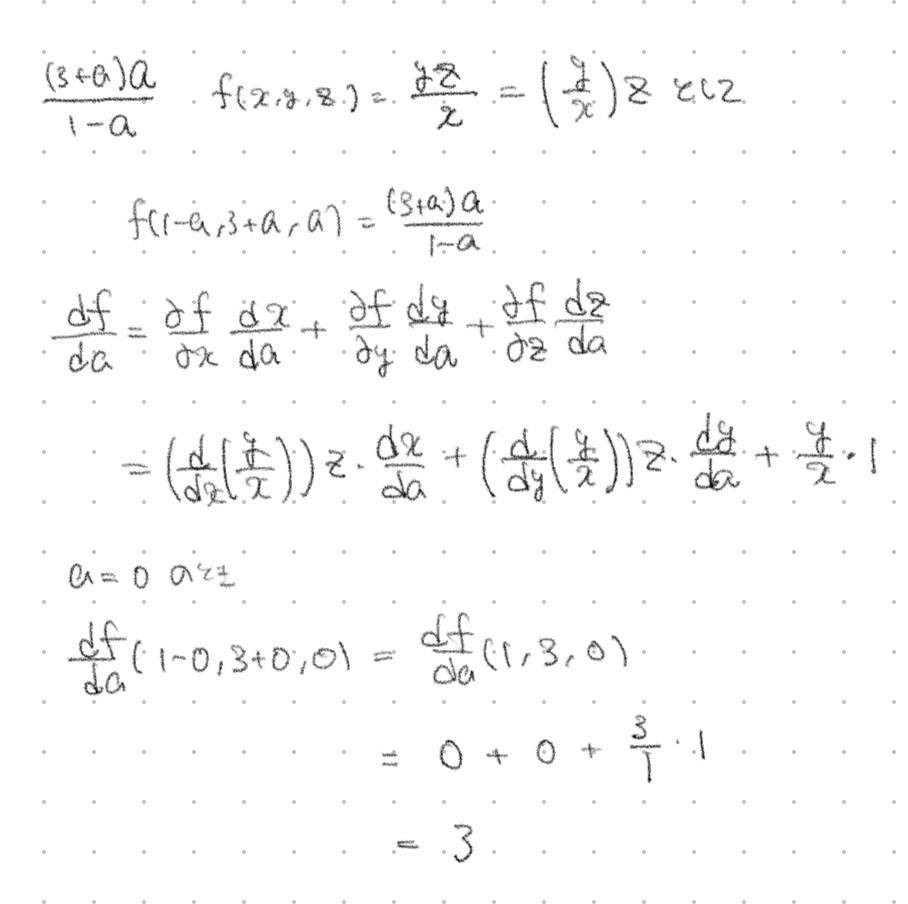 (3+a)a/(1-a) f(x,y,z) = yz/x = (y/x)z として
f(1-a,3+a,a) = (3+a)a/(1-a)
df/da = ∂f/∂x dx/da + ∂f/∂y dy/da + ∂f/∂z dz/da
= (d/dx(y/x))z・dx/da + (d/dy(y/x))z・dy/da + y/x・1
a=0 のとき
df/da(1-0,3+0,0) = df/da(1,3,0)
= 0 + 0 + 3/1・1
= 3